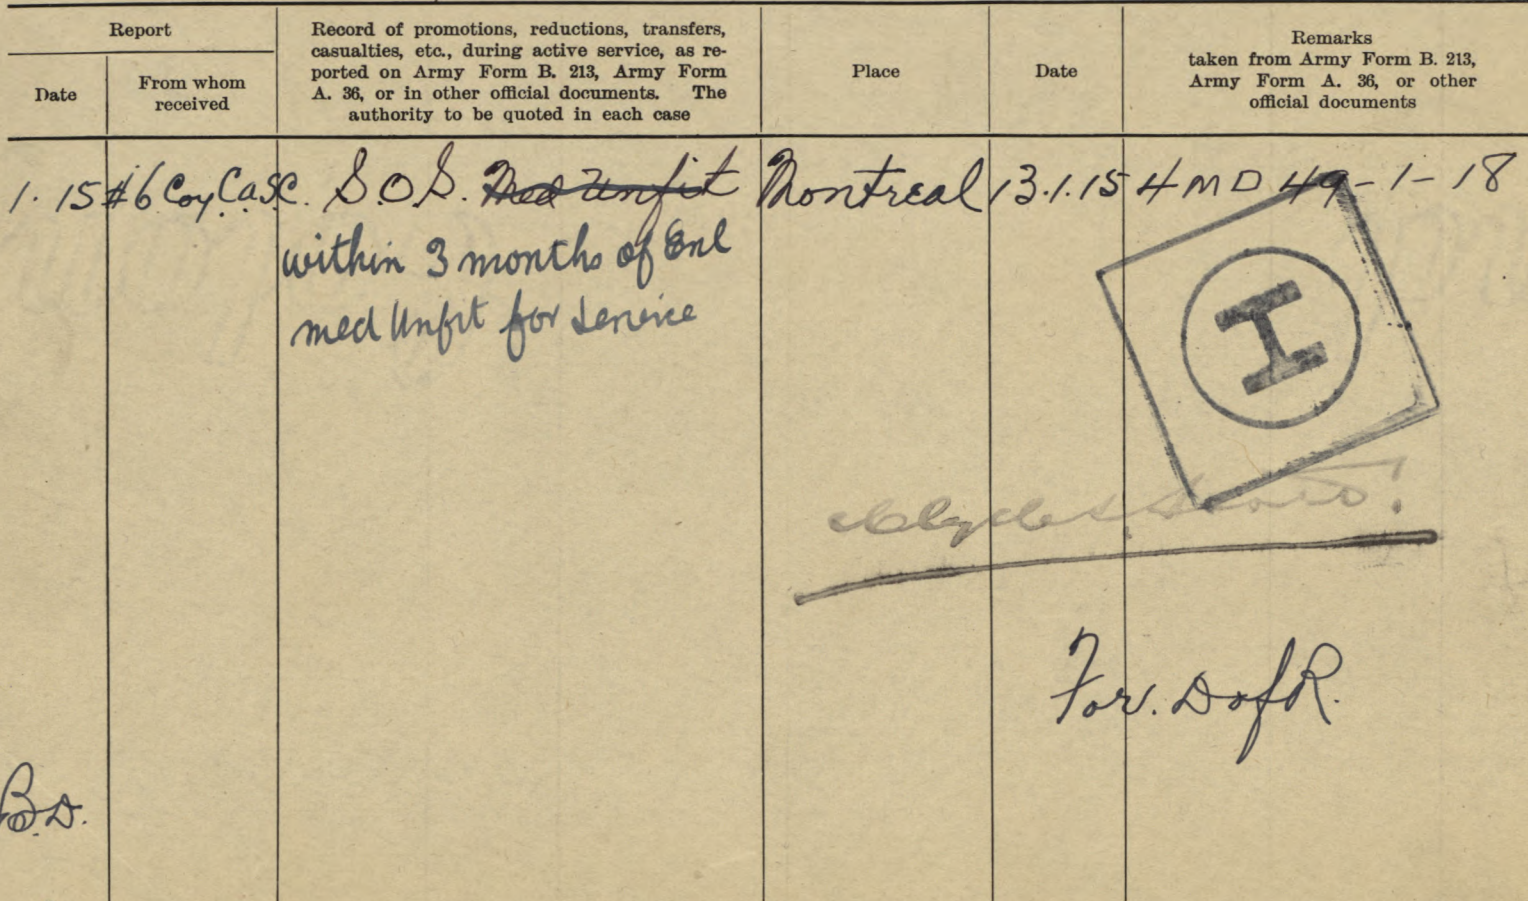 Report
Date
From whom
received
Record of promotions, reductions, transfers,
casualties, etc., during active service, as re-
ported on Army Form B. 213, Army Form
A. 36, or in other official documents. The
authority to be quoted in each case
Place
Date
Remarks
taken from Army Form B. 213,
Army Form A. 36, or other
official documents
1. 15 #6 Coy. C.A.S.C. S.O.S. Med Unfit Montreal 13.1.15 4 M D 49-1-18
within 3 months of Enl
med Unfit for Service
I
For. D of R.
B.D.